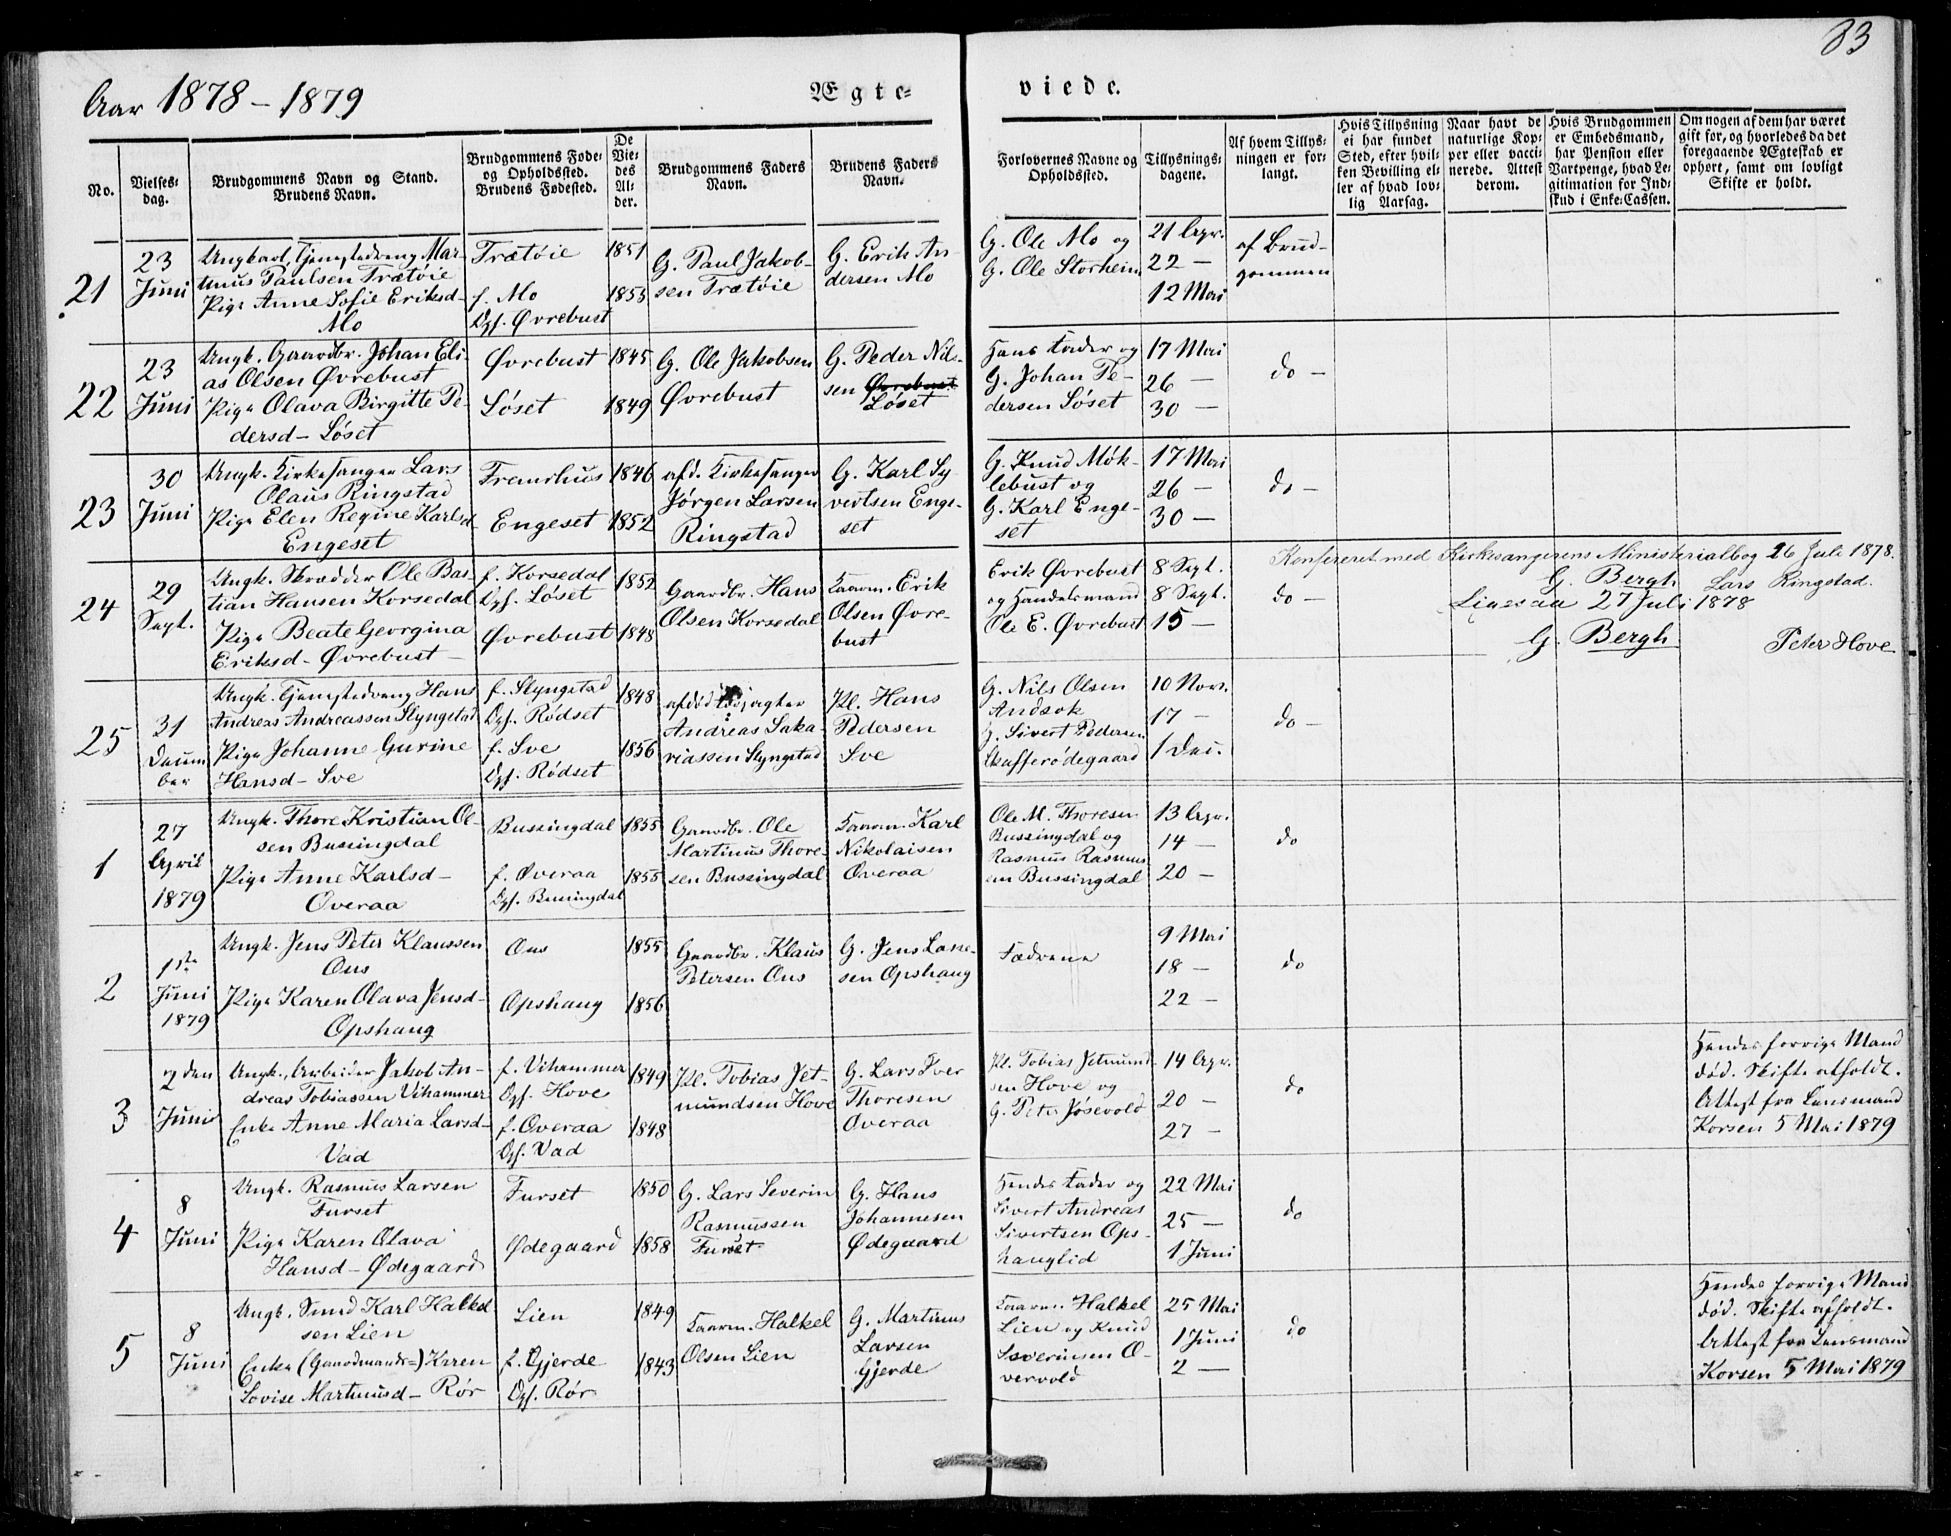 83
Aar 1878 - 1879
Ægte-
viede.
No.
Vielses-
dag.
Brudgommens Navn og Stand.
Brudens Navn.
Brudgommens Føde-
og Opholdssted.
Brudens Fødested.
De
Vie-
des
Al-
der.
Brudgommens Faders
Navn.
Brudens Faders
Navn.
Forlovernes Navne og
Opholdssted.
Tillysnings-
dagene.
Af hvem Tillys-
ningen er for-
langt.
Hvis Tillysning
ei har fundet
Sted, efter hvil-
ken Bevilling el-
ler af hvad lov-
lig Aarsag.
Naar havt de
naturlige Kop-
per eller vacci-
nerede. Attest
derom.
Hvis Brudgommen
er Embedsmand,
har Pension eller
Vartpenge, hvad Le-
gitimation for Ind-
skud i Enke-Cassen.
Om nogen af dem har været
gift før, og hvorledes da det
foregaaende Ægteskab er
ophørt, samt om lovligt
Skifte er holdt.
21
23
Juni
Ungkarl, Tjenestedreng Mar-
tinus Paulsen Trætøie
Pige Anne Sofie Eriksd-
Mo
Trætøie
f. Mo
Opf. Øvrebust
1851
1853
G. Paul Jakob-
sen Trætøie
G. Erik An-
dersen Mo
G. Ole Mo og
G. Ole Storheim
21 Apr.
22 -
12 Mai
af Brud-
gommen
22
23
Juni
Ungk. Gaardbr. Johan Eli-
as Olsen Øvrebust
Pige Olava Birgitte Pe-
dersd- Løset
Øvrebust
Løset
1845
1849
G. Ole Jakobsen
Øvrebust
G. Peder Nil-
sen Øvrebust
Løset
Hans Fader og
G. Johan Pe-
dersen Løset
17 Mai
26 -
30 -
do -
23
30
Juni
Ungk. Kirkesanger Lars
Olaus Ringstad
Pige Elen Regine Karlsd-
Engeset
Fremrhus
Engeset
1846
1852
afd. Kirkesanger
Jørgen Larsen
Ringstad
G. Karl Sy-
vertsen Enge-
set
G. Knud Møk-
lebust og
G. Karl Enge-
set
17 Mai
26 -
30 -
do -
Konfereret med Kirkesangerens Ministerialbog 26 Juli 1878.
G. Bergh Lars Ringstad.
27 Juli 1878
G. Bergh
Peter Hove
24
29
Sept.
Ungk. Skrædder Ole Bas-
tian Hansen Korsedal
Pige Beate Georgina
Eriksd- Øvrebust -
f. Korsedal
Opf. Løset
Øvrebust
1852
1848
Gaardbr. Hans
Olsen Korsedal
Kaarm. Erik
Olsen Øvre-
bust
Erik Øvrebust
og Handelsmand
Ole E. Øvrebust
8 Sept.
8 Sept.
15 -
do -
25
31
Decem
ber
Ungk. Tjenestedreng Hans
Andreas Andreassen Slyngstad
Pige Johanne Gurine
Hansd- Sve
f. Slyngstad
Opf. Rødset
f. Sve
Opf. Rødset
1848
1856
afdød
Andreas Saka-
riassen Slyngstad
Pl. Hans
Pedersen
Sve
G. Nils Olsen
Andsok
G. Sivert Pedersen
Skafferødegaard
10 Nov.
17 -
1 Dec.
do -
1
27
April
1879
Ungk. Thore Kristian Ol-
sen Bussingdal
Pige Anne Karlsd-
Overaa
Bussingdal
f. Overaa
Opf. Bussingdal
1855
1855
Gaardbr. Ole
Martinus Thore-
sen Bussingdal
Kaarm. Karl
Nikolaisen
Overaa
Ole M. Thoresen
Bussingdal og
Rasmus Rasmus
sen Bussingdal
13 Apr.
14 -
20 -
do
2
1ste
Juni
1879
Ungk. Jens Peter Klaussen
Ous
Pige Karen Olava Jensd-
Opshaug
Ous
Opshaug
1855
1856
Gaardbr. Klaus
Petersen Ous
G. Jens Lane-
sen Opshaug
Fædrene
9 Mai
18 -
22 -
do
3
2den
Juni
Ungk. Arbeider Jakob An-
dreas Tobiassen Vihammer
Enke Anne Maria Larsd-
Vad
f. Vihammer
Opf. Hove
f. Overaa
Opf. Vad
1849
1848
Pl. Tobias Jet-
mundsen Hove
G. Lars Iver
Thoresen
Overaa
Pl. Tobias Jetmund-
sen Hove og
G. Peter Jøsevold
14 Apr.
20 -
27 -
do
Hendes forrige Mand
død. Skifte afholdt.
Attest fra Lensmand
Korsen 5 Mai 1879
4
8
Juni
Ungk. Rasmus Larsen
Furset
Pige Karen Olava
Hansd- Ødegaard
Furset
Ødegaard
1850
1858
G. Lars Severin
Rasmussen
Furset
G. Hans
Johannesen
Ødegaard
Hendes Fader og
Sivert Andreas
Sivertsen Ops-
hauglid
22 Mai
25 -
1 Juni
do
5
8
Juni
Ungk. Smed Karl Halkel
sen Lien
Enke (Gaardmands-) Karen
Lovise Martinusd- Rør
Lien
f. Gjerde
Opf. Rør
1849
1843
Kaarm. Halkel
Olsen Lien
G. Martinus
Larsen
Gjerde
Kaarm. Halkel
Lien og Knud
Severinsen O-
vervold
25 Mai
1 Juni
2 -
do
Hendes forrige Mand
død. Skifte afholdt.
Attest fra Lensmand
Korsen 5 Mai 1879